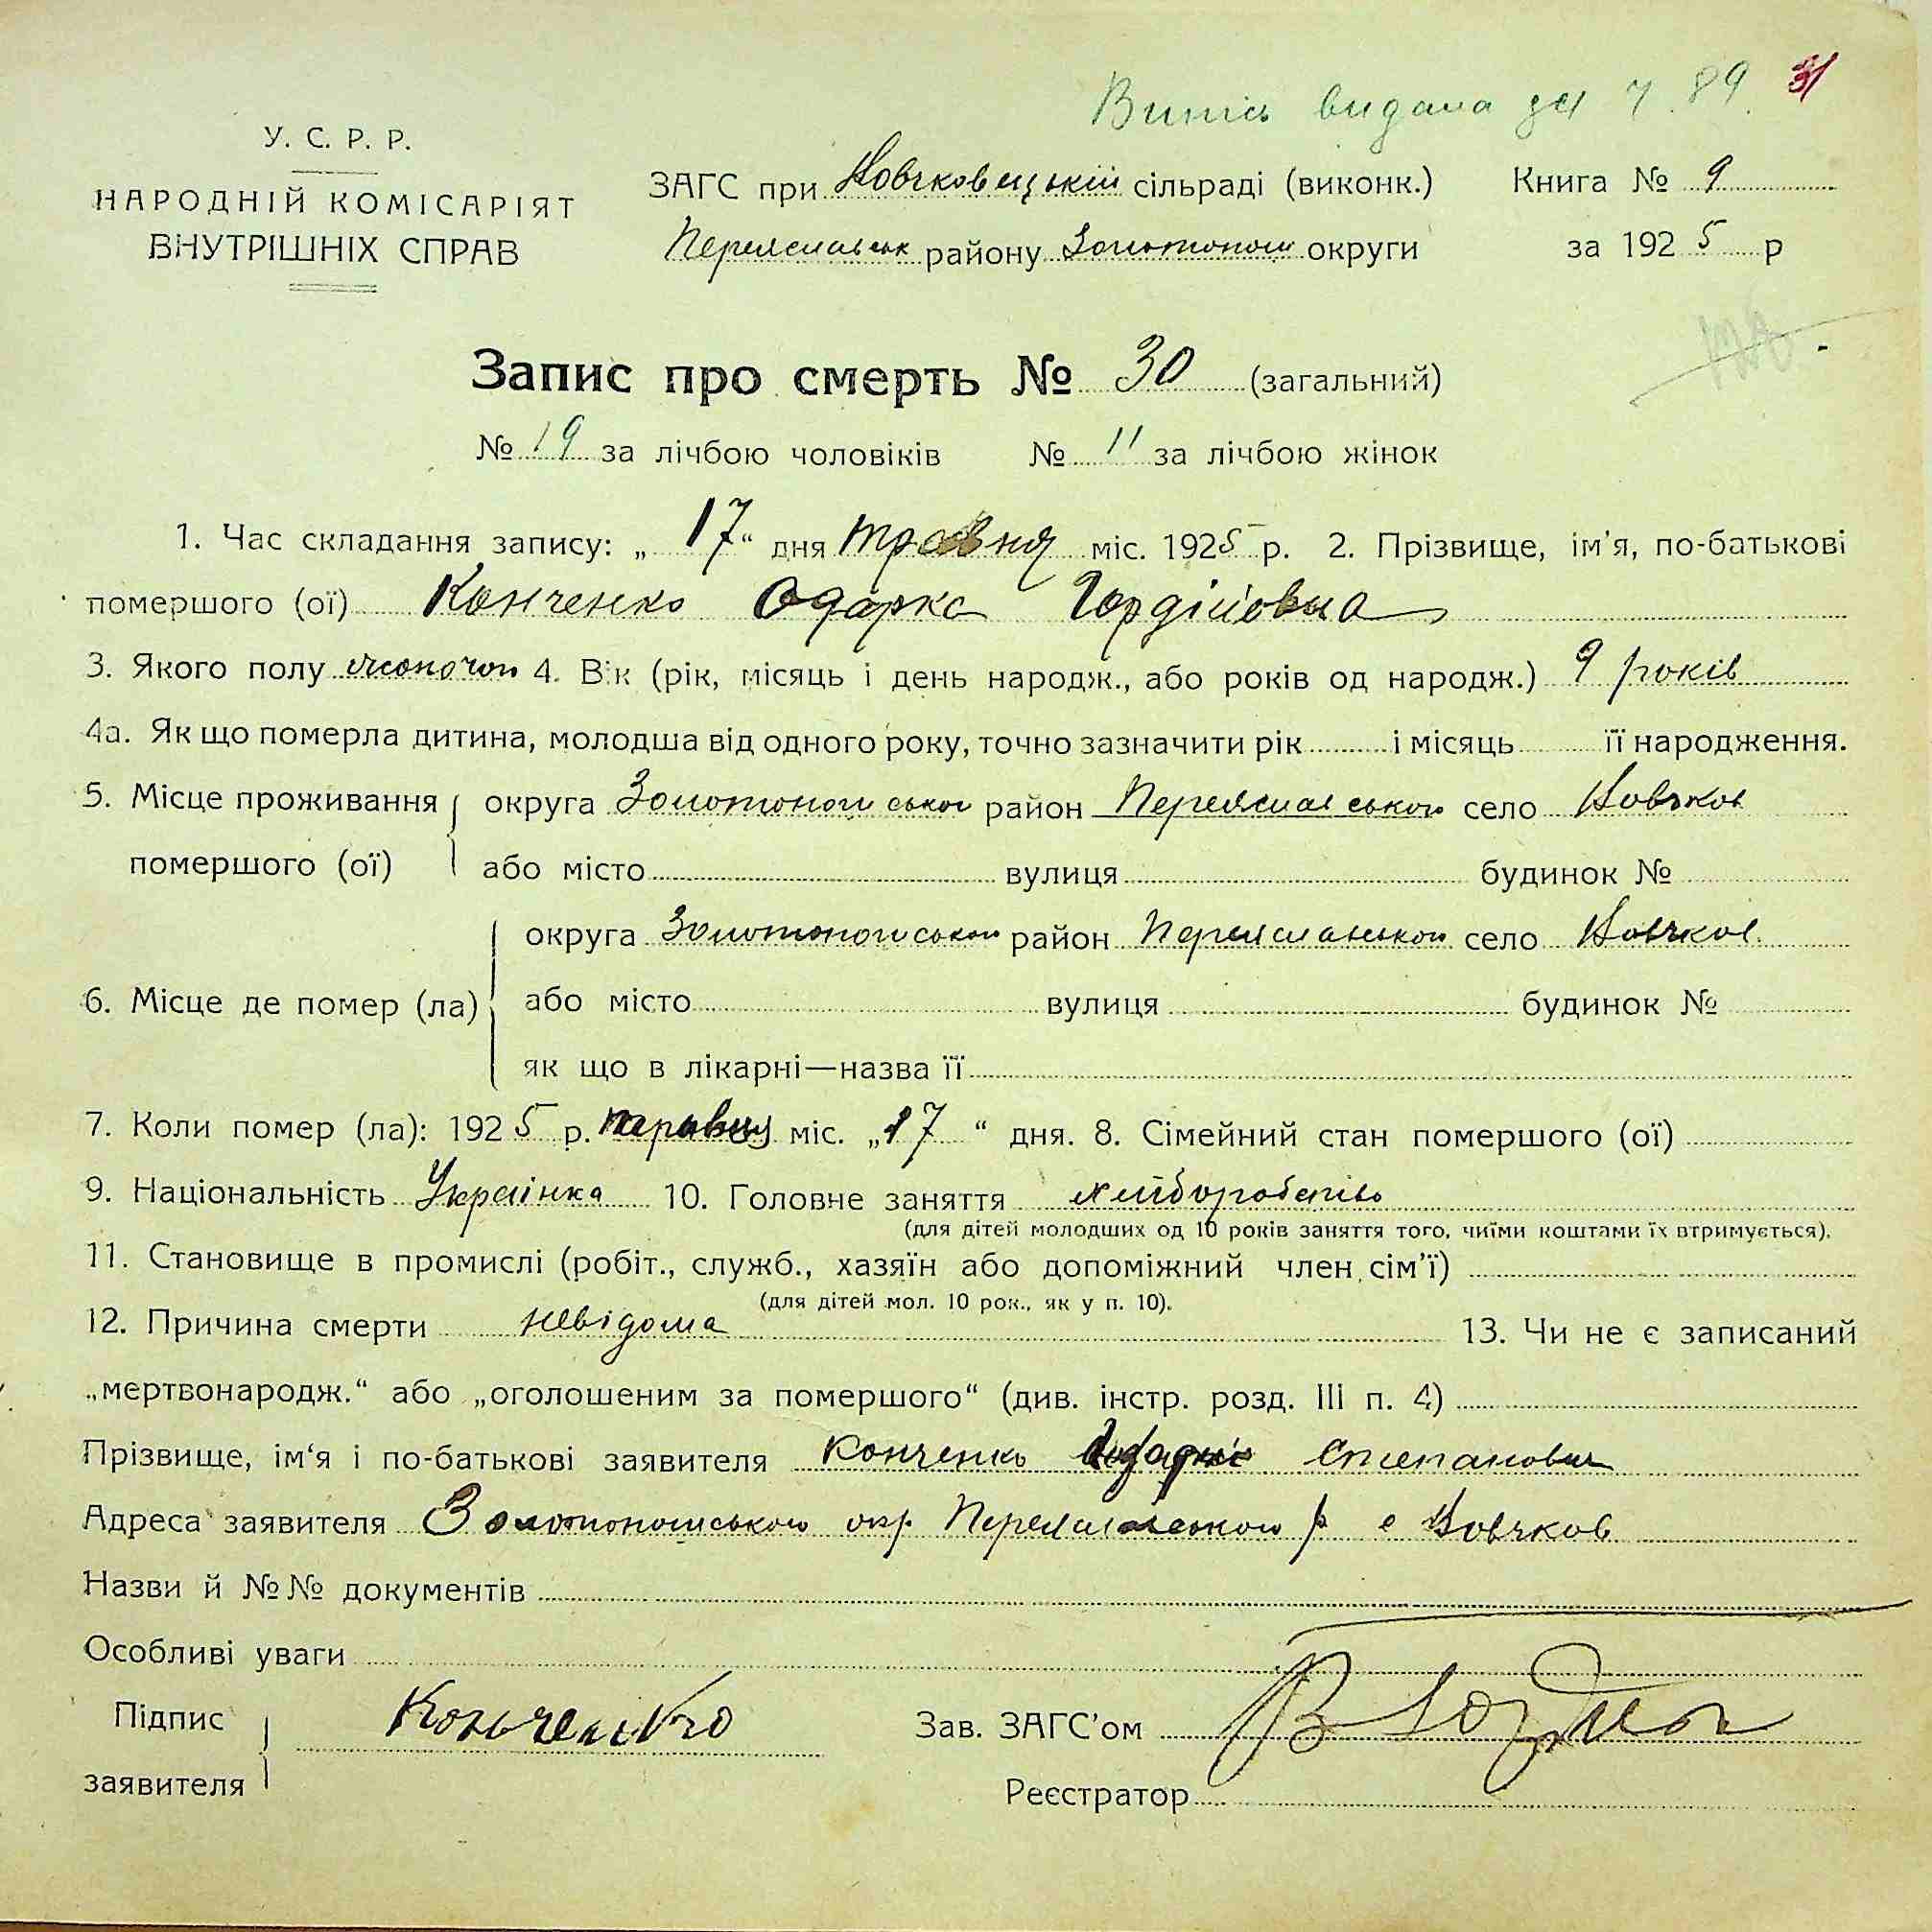 Випись видана за ч. 89. 31
У. С. Р. Р.
НАРОДНІЙ КОМІСАРІЯТ
ВНУТРІШНІХ СПРАВ
ЗАГС при Вовчковецькій сільраді (виконк.)
Переяславськ району Золотонош округи
Книга № 9
за 1925 р
Запис про смерть № 30 (загальний)
№ 19 за лічбою чоловіків № 11 за лічбою жінок
1. Час складання запису: „17“ дня травня міс. 1925 р. 2. Прізвище, ім'я, по-батькові
помершого (ої) Конченко Одарка Гордіївна
3. Якого полу 4. Вік (рік, місяць і день народж., або років од народж.) 9 років
4а. Як що померла дитина, молодша від одного року, точно зазначити рік і місяць її народження.
5. Місце проживання округа Золотоношської район Переяславського село Вовчков
помершого (ої) або місто вулиця будинок №
округа Золотоношської район Переяславського село Вовчков
6. Місце де помер (ла) або місто вулиця будинок №
як що в лікарні—назва її
7. Коли помер (ла): 1925 р. травня міс. „17“ дня. 8. Сімейний стан помершого (ої)
9. Національність Українка 10. Головне заняття хліборобство
(для дітей молодших од 10 років заняття того, чиїми коштами їх втримується).
11. Становище в промислі (робіт., служб., хазяїн або допоміжний член сім'ї)
(для дітей мол. 10 рок., як у п. 10).
12. Причина смерти невідома 13. Чи не є записаний
„мертвонародж.“ або „оголошеним за помершого“ (див. інстр. розд. III п. 4)
Прізвище, ім‘я і по-батькові заявителя Конченко Степанович
Адреса заявителя Золотоношського окр. Переяславського р с Вовчков
Назви й №№ документів
Особливі уваги
Підпис заявителя Конченко
Зав. ЗАГС'ом
Реєстратор